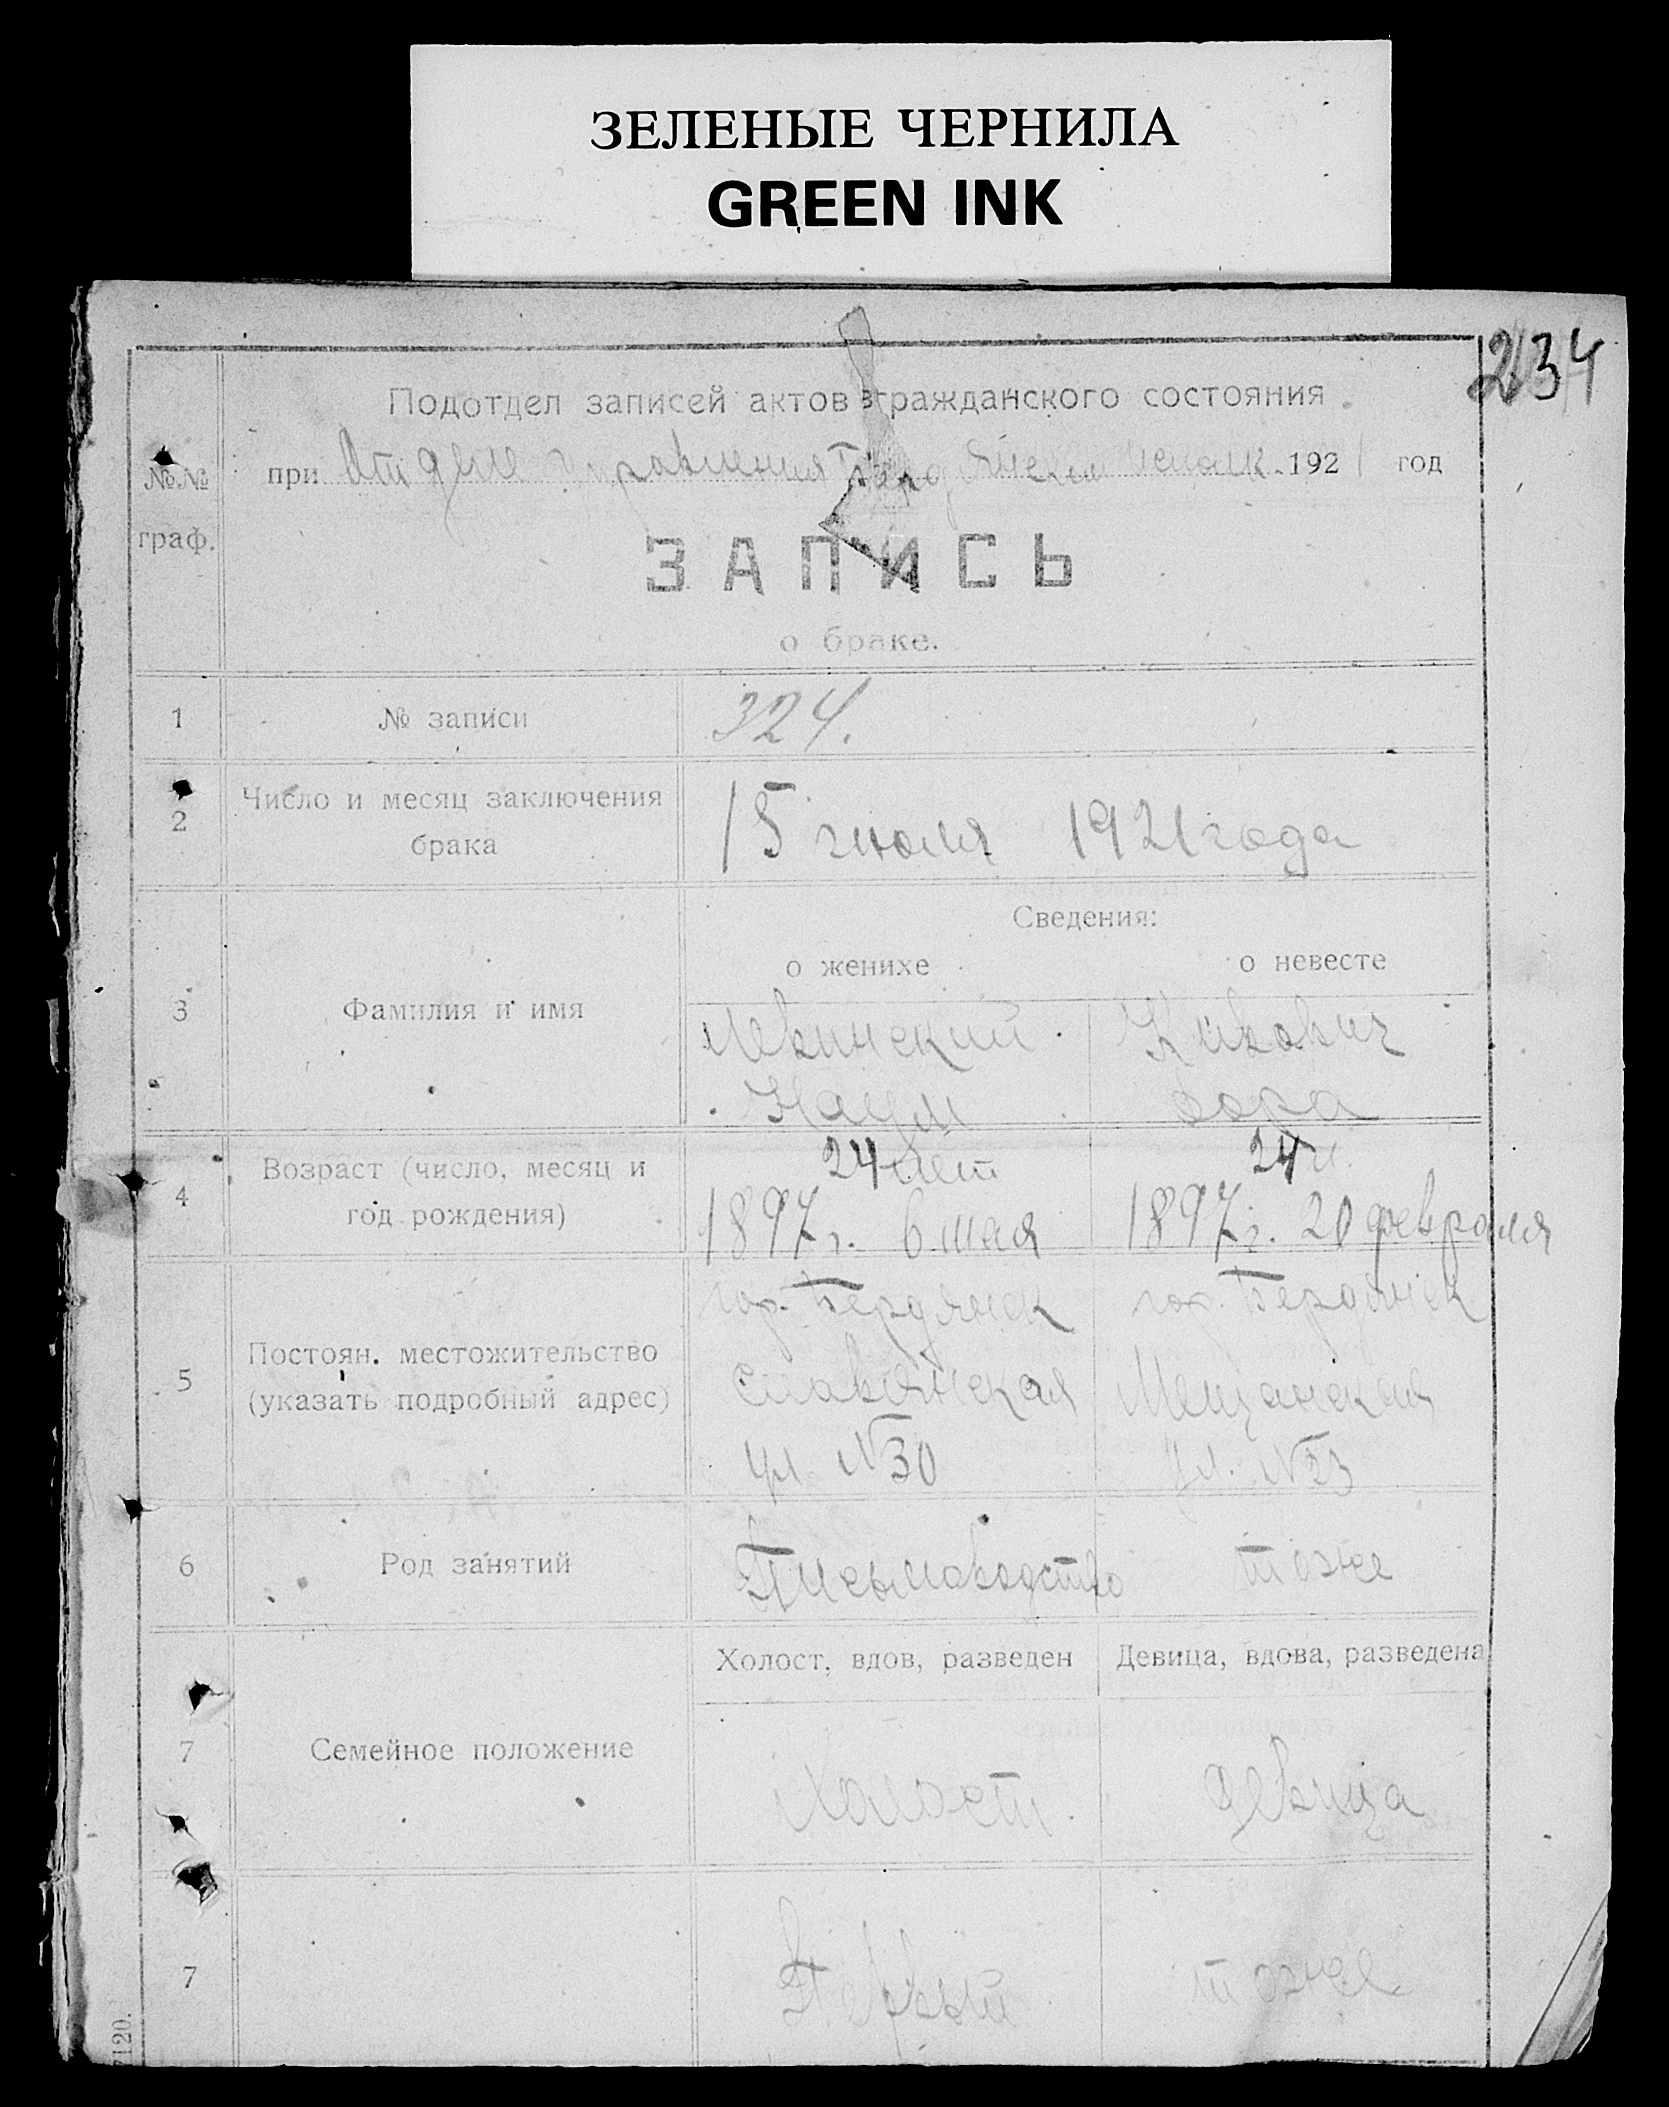 ЗЕЛЕНЫЕ ЧЕРНИЛА
GREEN INK
234
Подотдел записей актов гражданского состояния
№№ граф.
при Отделе Управления Бердянском исполк. 1921 год
ЗАПИСЬ
о браке.
1 № записи 324.
2 Число и месяц заключения брака 15 июля 1921 года
Сведения:
о женихе о невесте
3 Фамилия и имя
Левинский Кивович
Наум Дора
4 Возраст (число, месяц и год рождения)
24 лет 24 л.
1897 г. 6 мая 1897 г. 20 февраля
5 Постоян. местожительство (указать подробный адрес)
гор. Бердянск гор. Бердянск
Славянская Мещанская
ул. №30 ул. №23
6 Род занятий Письмоводство тоже
Холост, вдов, разведен Девица, вдова, разведена
7 Семейное положение холост девица
7 Первый тоже
7120.